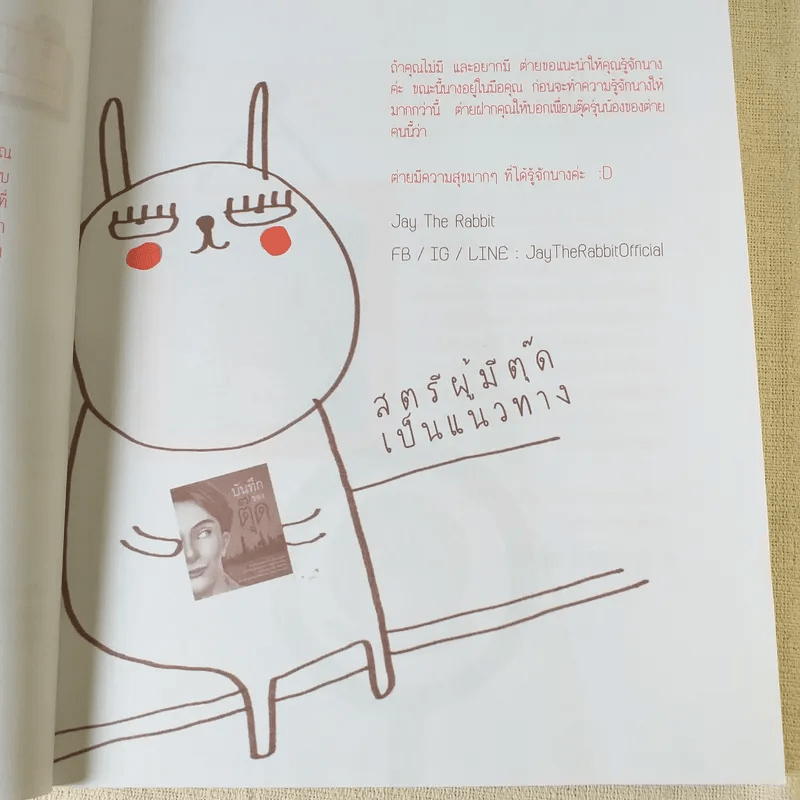 ถ้าคุณไม่มี และอยากมี ต่ายขอแนะนำให้คุณรู้จักนาง
ค่ะ ขณะนี้นางอยู่ในมือคุณ ก่อนจะทำความรู้จักนางให้
มากกว่านี้ ต่ายฝากคุณให้บอกเพื่อนตุ๊ดรุ่นน้องของต่าย
คนนี้ว่า
ต่ายมีความสุขมากๆ ที่ได้รู้จักนางค่ะ :D
Jay The Rabbit
FB / IG / LINE : JayTheRabbitOfficial
สตรีผู้มีตุ๊ด
เป็นแนวทาง
บันทึก
ของ
ตุ๊ด